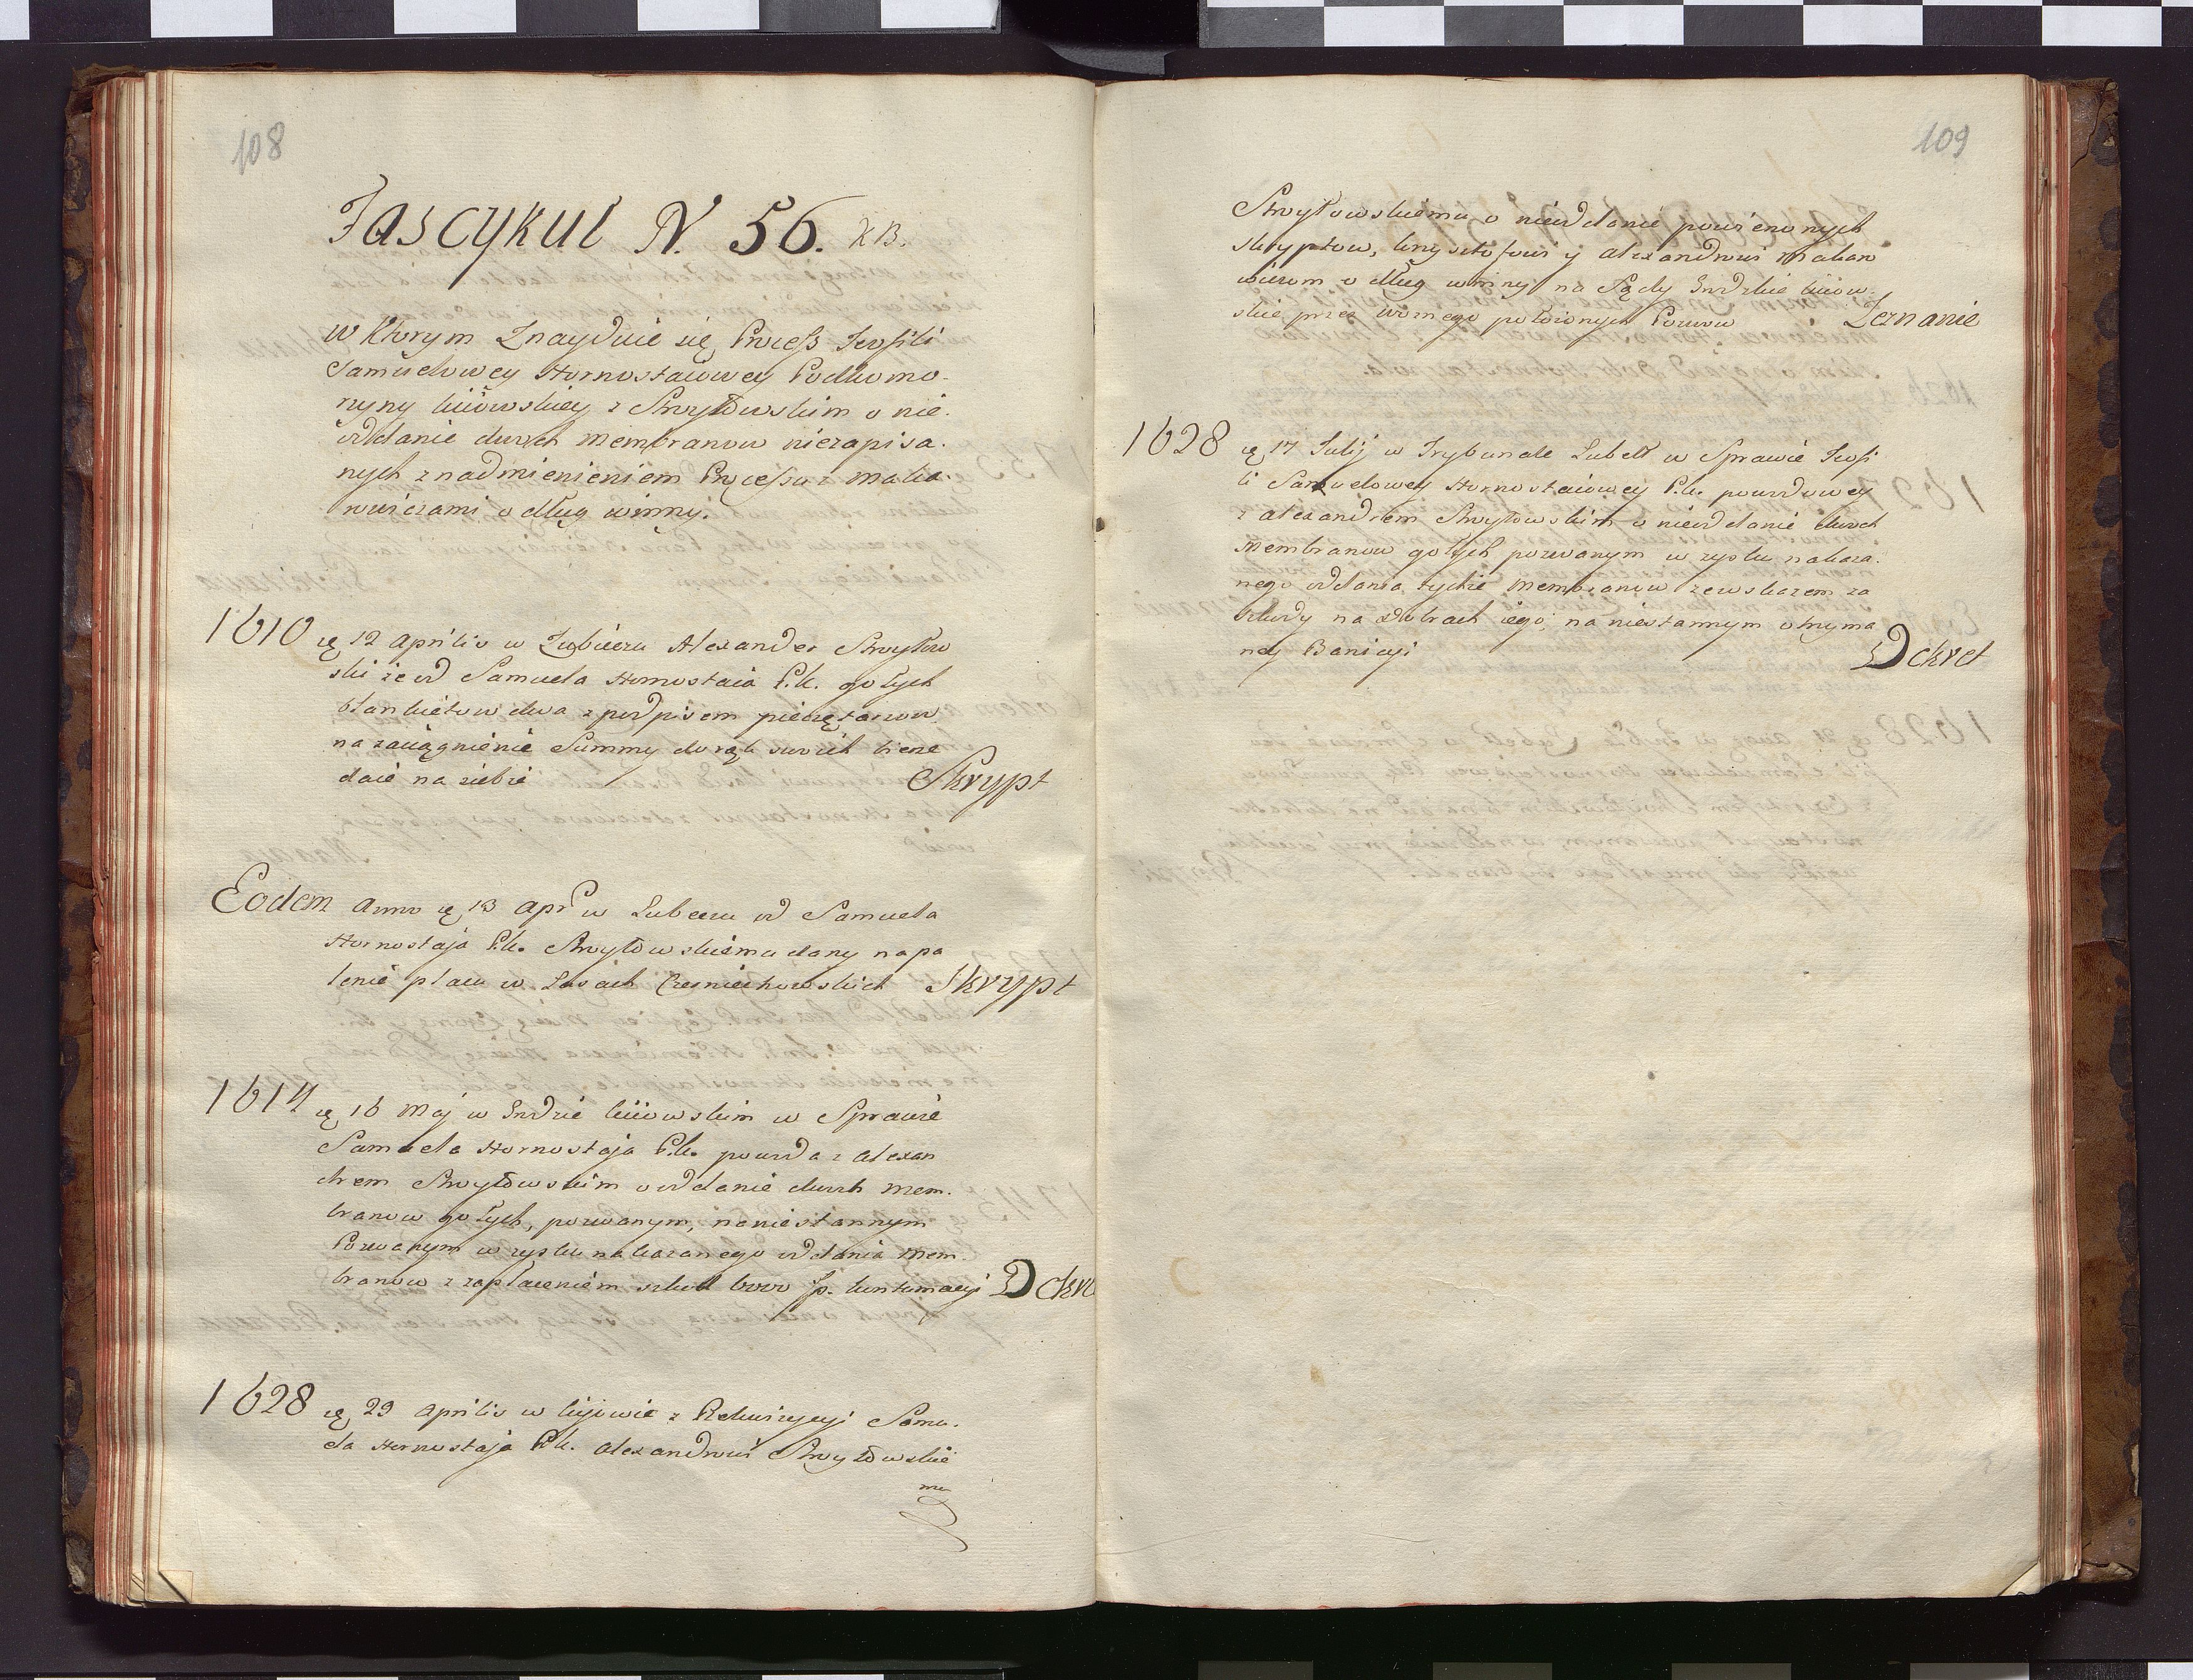 108
Fascykul N. 56. XB.
w Ktorym Znayduie się Process Teofili
Samuelowey Hornostaiowey Podkomo-
rzyny kiiowskiey z Strvytowskim o nie-
oddanie dwoch Membranow niezapisa-
nych z nadmienieniem Processu z Maka-
rewiczami o dług winny.
1610 ię 12 Aprilis w Lubieczu Alexander Strvytow
ski że od Samuela Hornostaia P.K. gołych
blankietow dwa z podpisem pieczętarzow
na zaciągnienie Summy do rąk swoich bierze
daie na siebie Skrypt
Eodem Anno ię 13 Apr w Lubeczu od Samuela
Hornostaja P.K. Strvytowskiemu dany na pa
lenie płaću w Lasach Czerniechowskich Skrypt
1614 ię 16 Maj w Grodzie kiiowskim w Sprawie
Samuela Hornostaja P.K. powoda z Alexan
drem Strvytowskim o oddanie dwoch Mem-
branow gołych, pozwanym, na niestannym
Pozwanym w zysku nakazanego oddania Mem-
branow z zapłaceniem szkod 6000 Zp. kontumacyi Dekre
1628 ię 29 Aprilis w kijowie z Rekwizycyi Samu-
ela Hornostaja P.K. Alexandrowi Strvytowskie
mu
109
Strvytowskiemu o nieoddanie powierzonych
skryptow, krzysztofowi y Alexandrowi Makaro
wiczom o dług winny na Sądy Grodzkie kiiow-
skie przez Woznego położonych Pozwow Zeznanie
1628 ię 17 Julij w Trybunale Lubelt w Sprawie Teofi
li Samuelowey Hornostaiowey P.K. powodowey
z Alexandrem Strvytowskim o nieoddanie dwoch
Membranow gołych pozwanym w zysku nakaza-
nego oddania tychże Membranow ze wskazem za
szkody na dobrach iego, na niestannym otrzyma
ney Banicyi Dekret